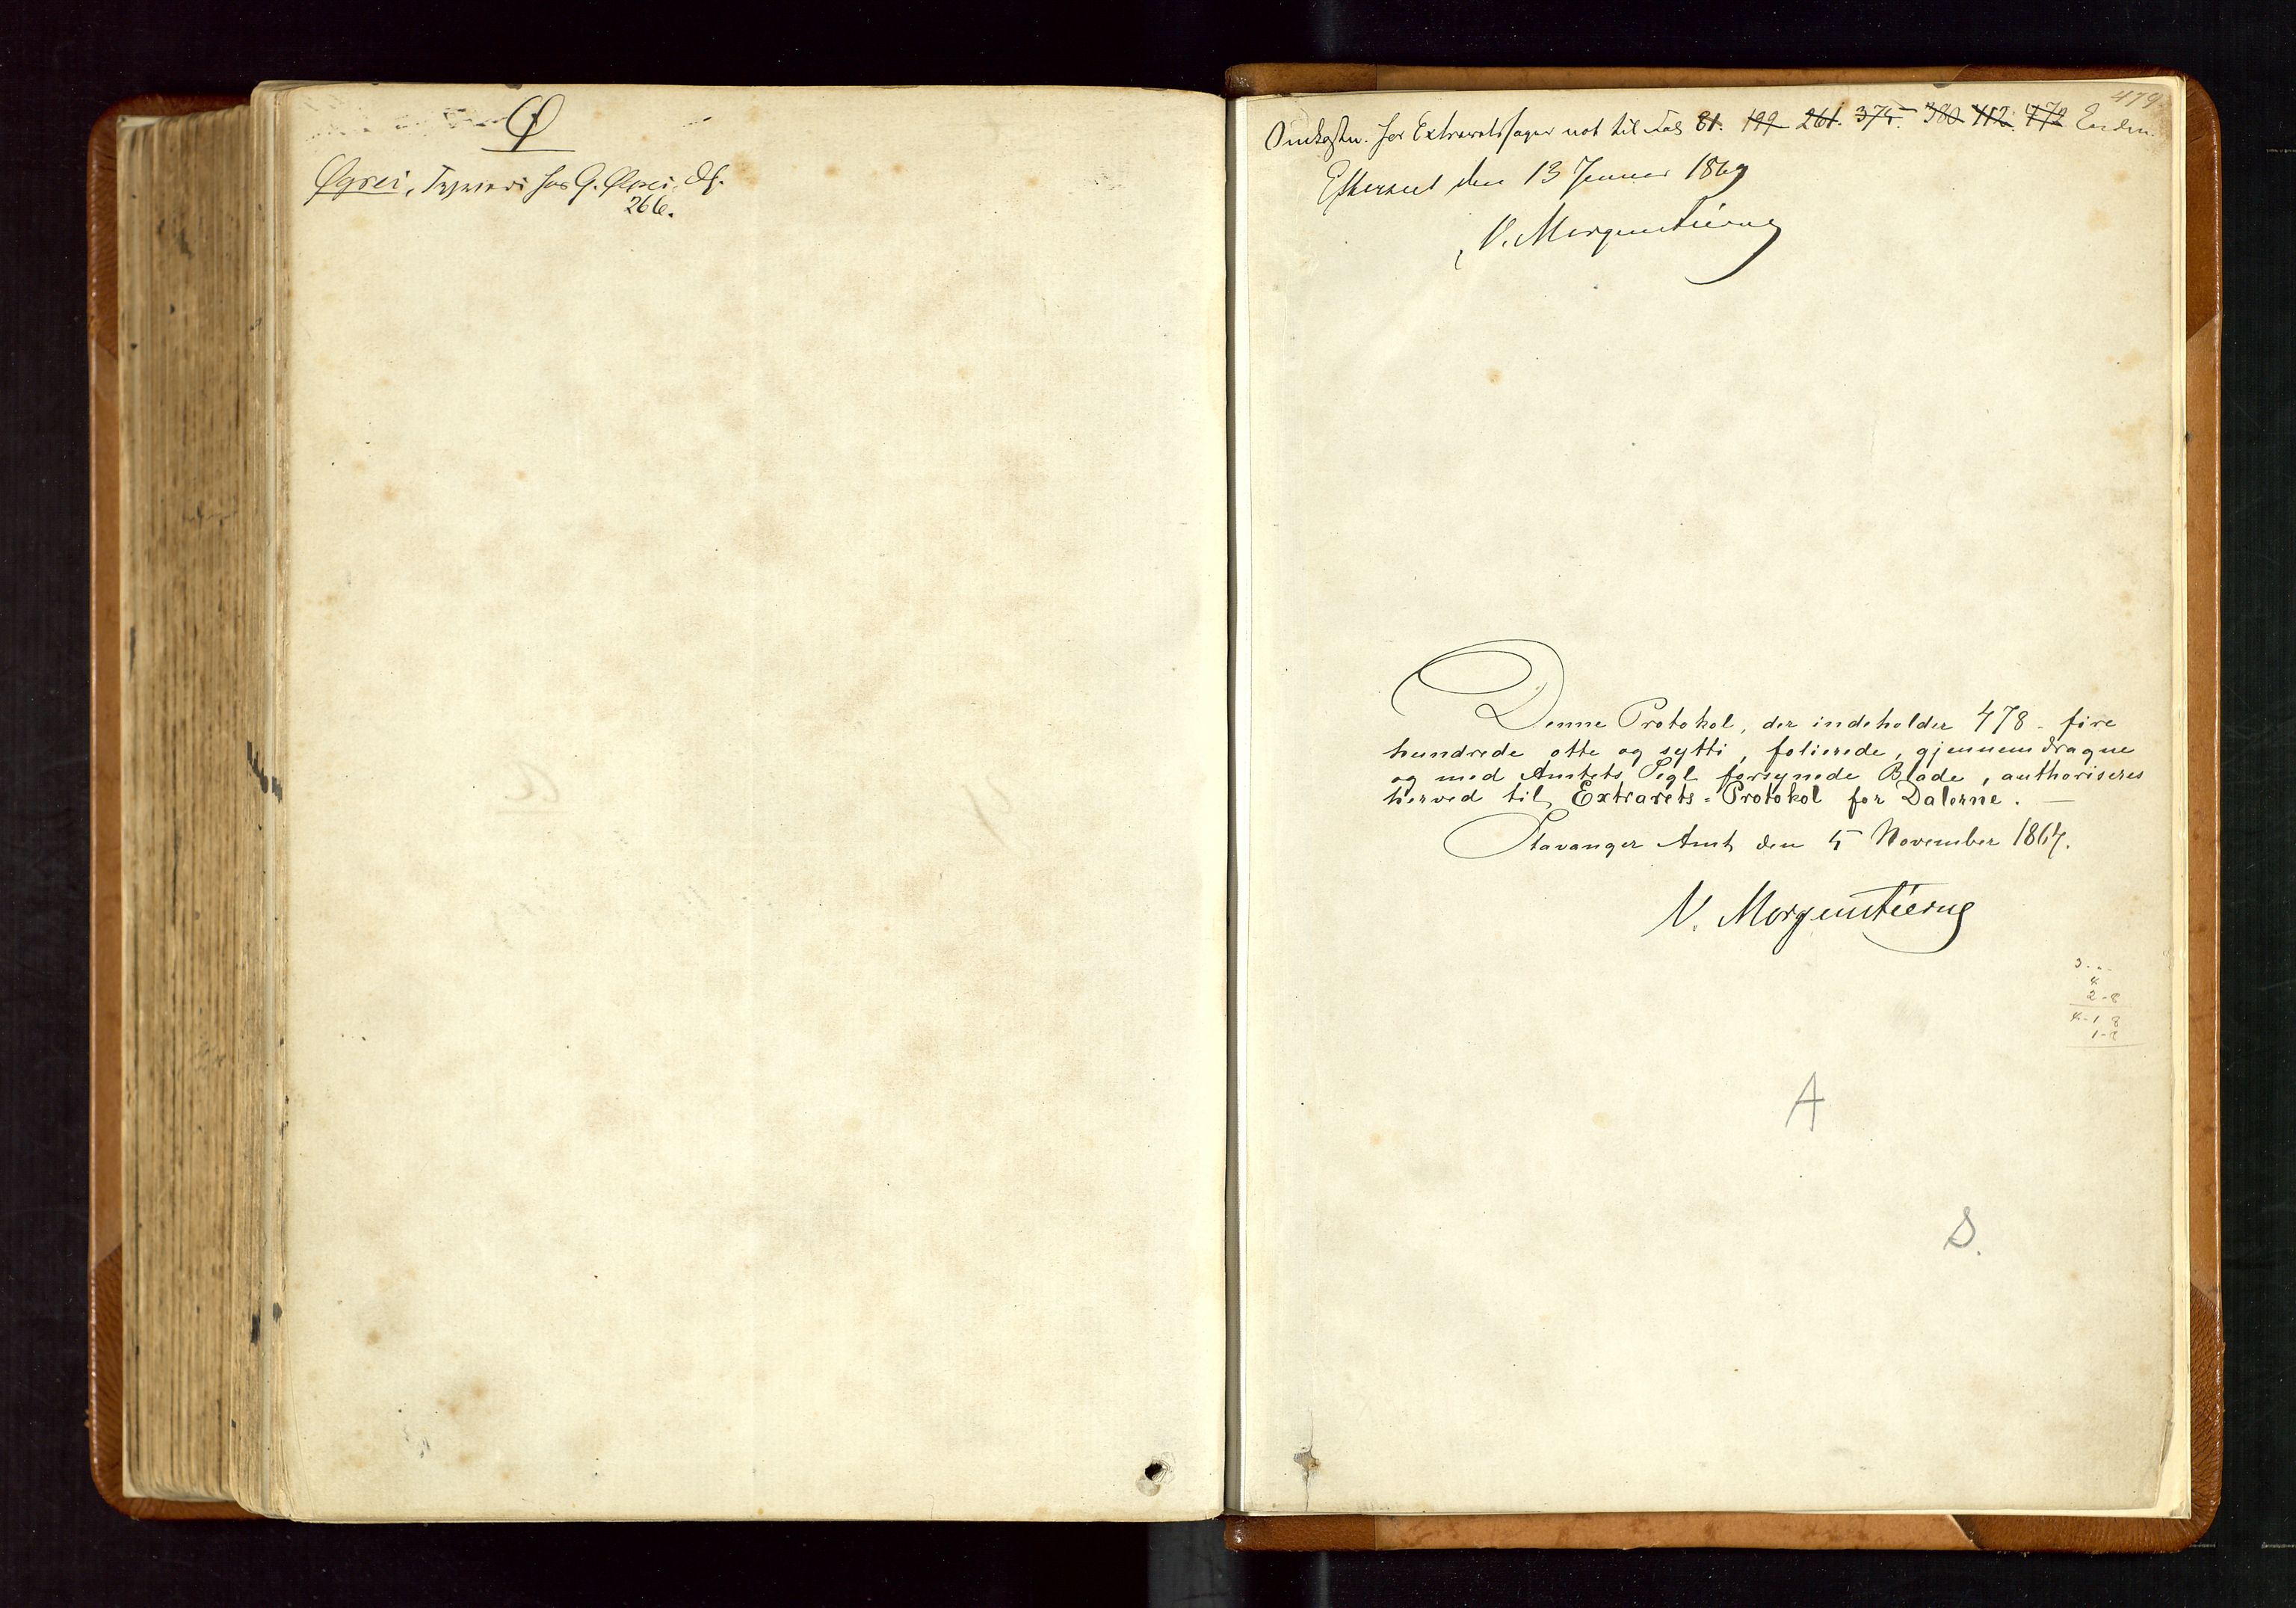 Ø
Øgrei, Tyveri hos G. Øgrei, df.
266.
479.
Omkostn. for Extraretssager not til Fol 81. 199 261. 375. 380 412. 472 Enden.
Efterseet den 13 Januar 1869
V. Morgenstierne
Denne Protokol, der indeholder 478 - fire
hundrede otte og sytti, folierede, gjennemdragne
og med Amtets Segl forsynede Blade, authoriseres
herved til Extrarets=Protokol for Dalerne. —
Stavanger Amt den 5 November 1864.
V. Morgenstierne
4
2-8
4-1 8
1-8
A
S.